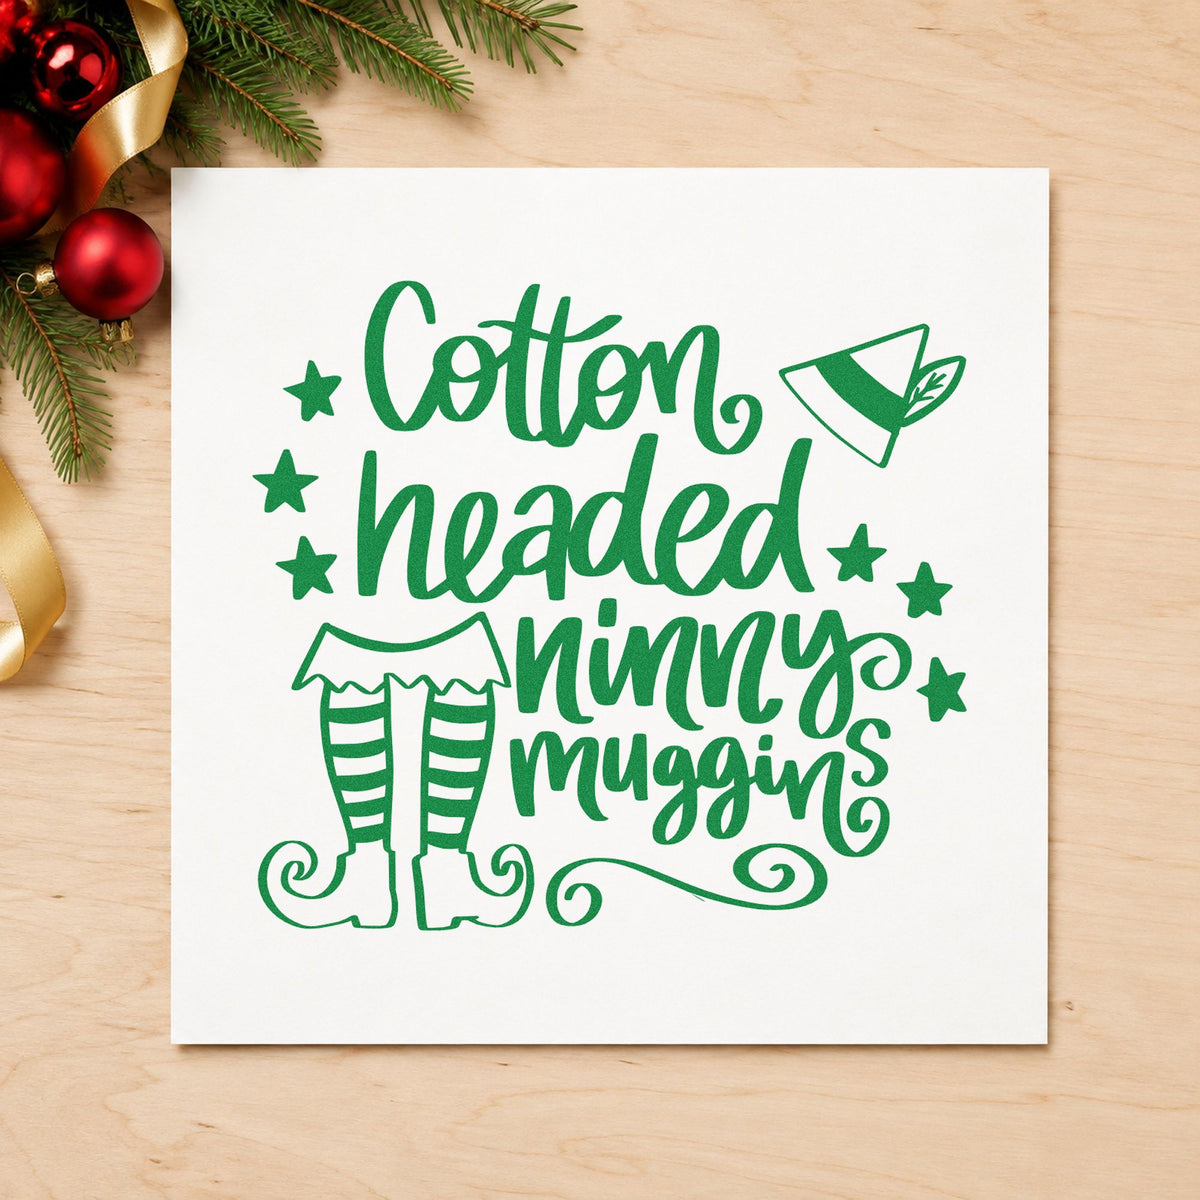 Cotton
headed
ninny
muggins